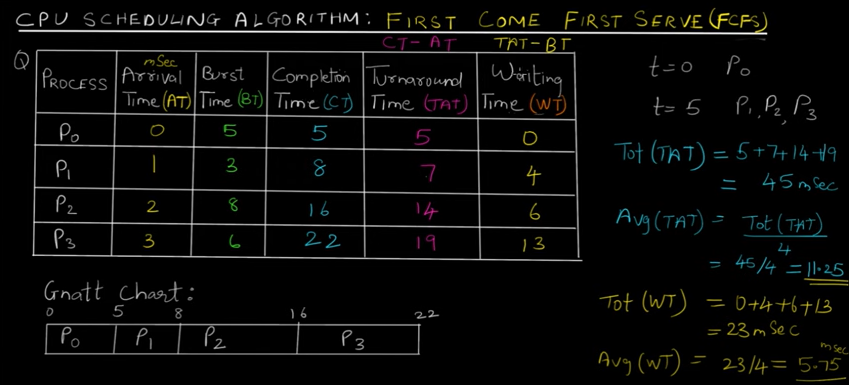 CPU SCHEDULING ALGORITHM: FIRST COME FIRST SERVE (FCFS)
CT-AT TAT-BT
Q
PROCESS
mSec
Arrival
Time (AT)
Burst
Time (BT)
Completion
Time (CT)
Turnaround
Time (TAT)
Waiting
Time (WT)
P0 0 5 5 5 0
P1 1 3 8 7 4
P2 2 8 16 14 6
P3 3 6 22 19 13
Gnatt Chart:
0 5 8 16 22
P0 P1 P2 P3
t=0 P0
t=5 P1, P2, P3
Tot (TAT) = 5+7+14+19
= 45 mSec
Avg (TAT) = Tot (TAT)
4
= 45/4 = 11.25
Tot (WT) = 0+4+6+13
= 23 mSec
mSec
Avg (WT) = 23/4 = 5.75